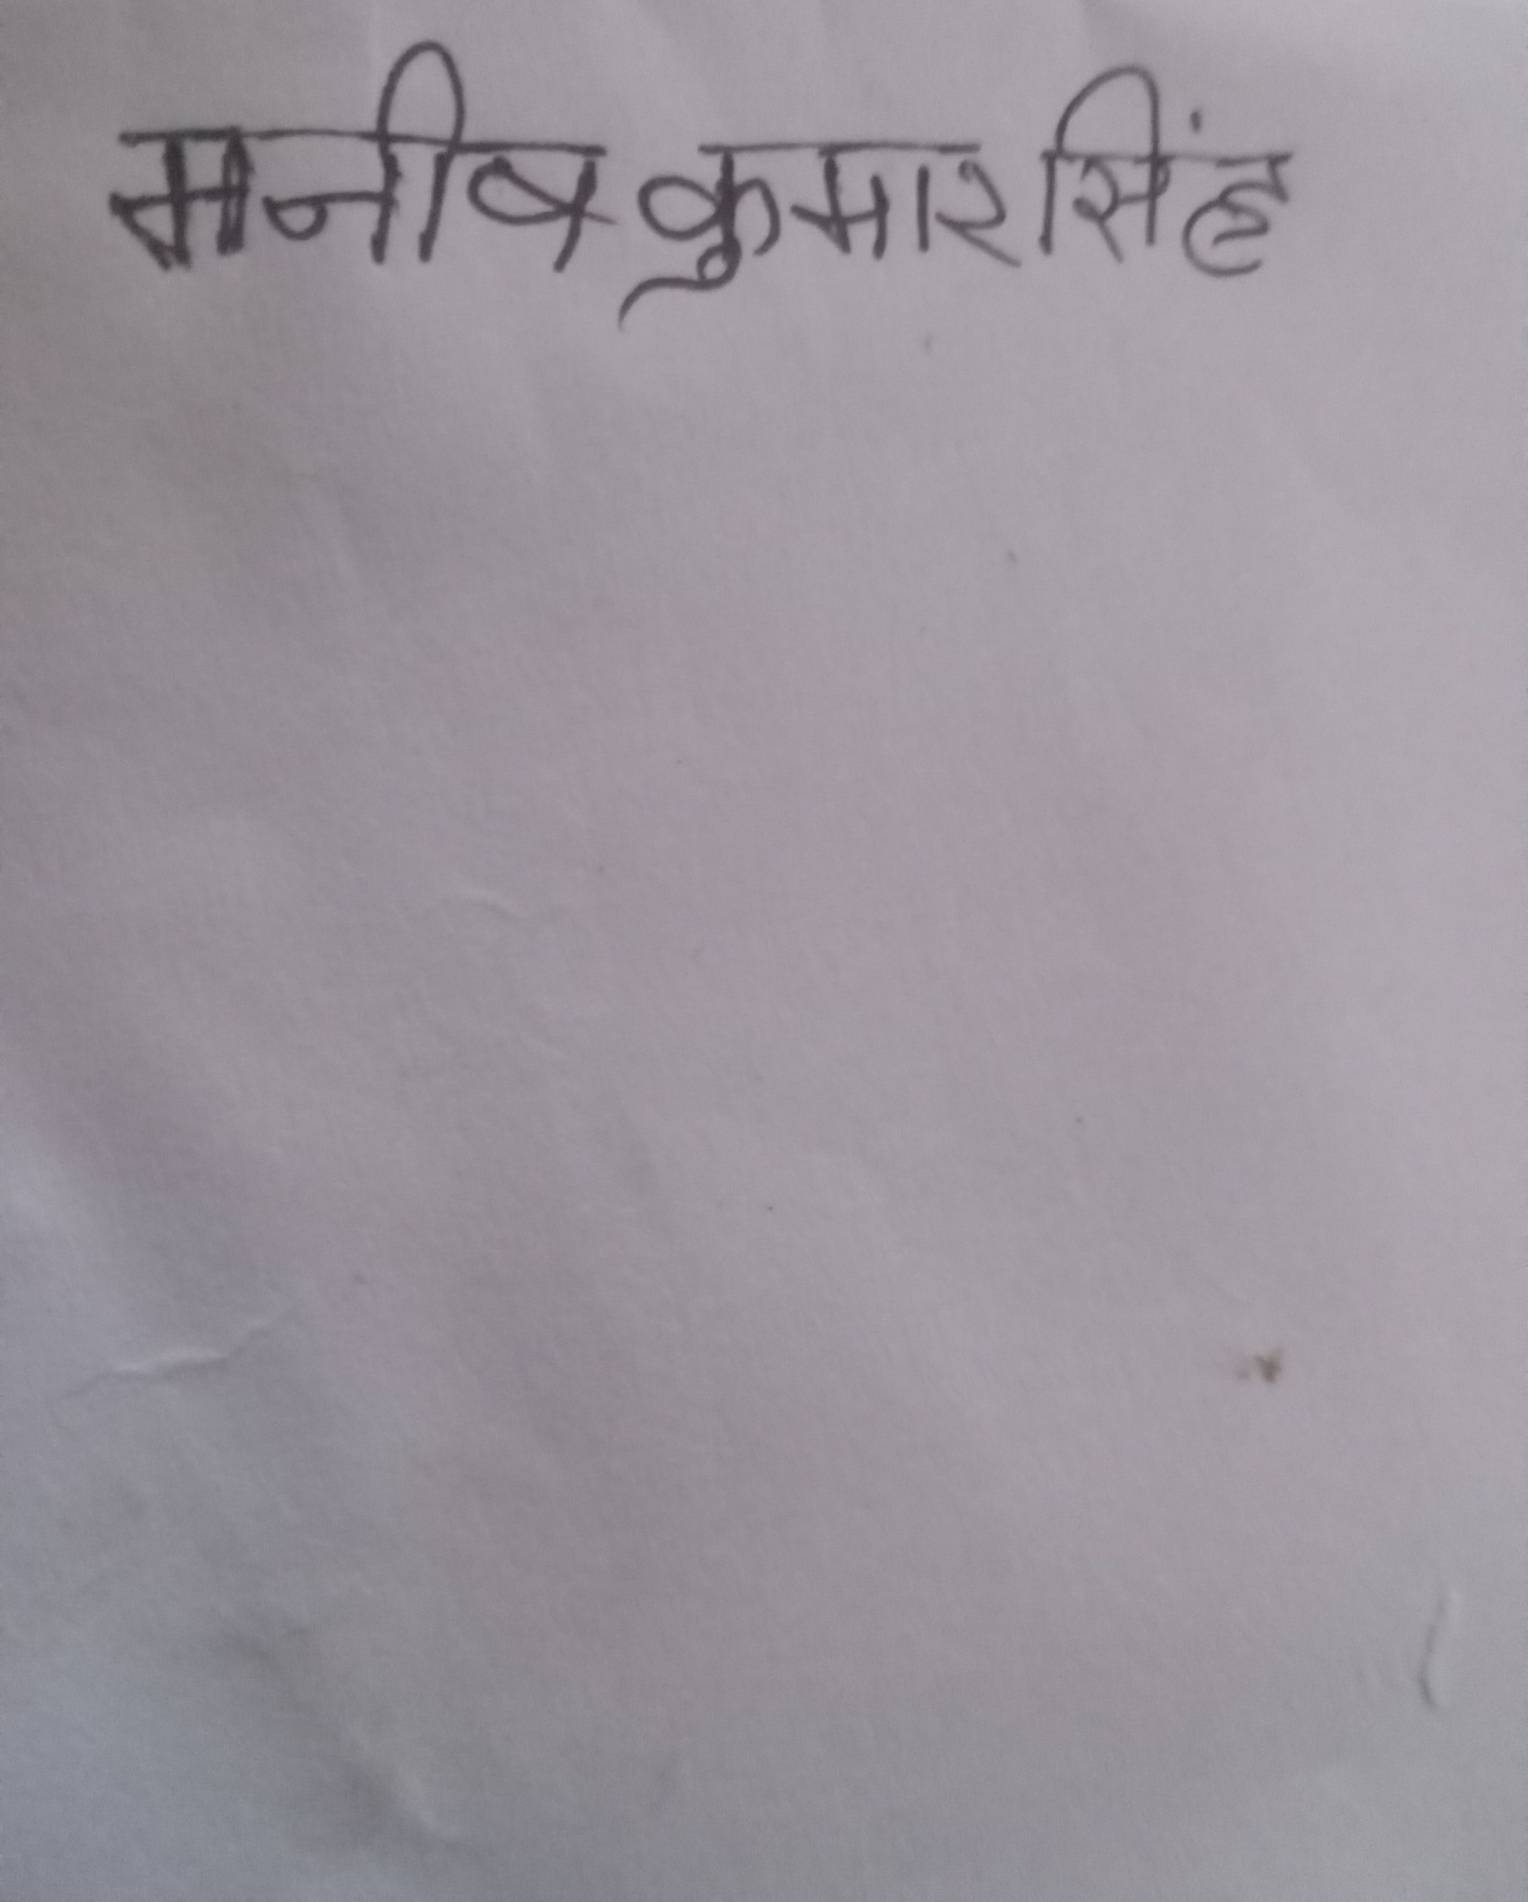 मनीष कुमार सिंह